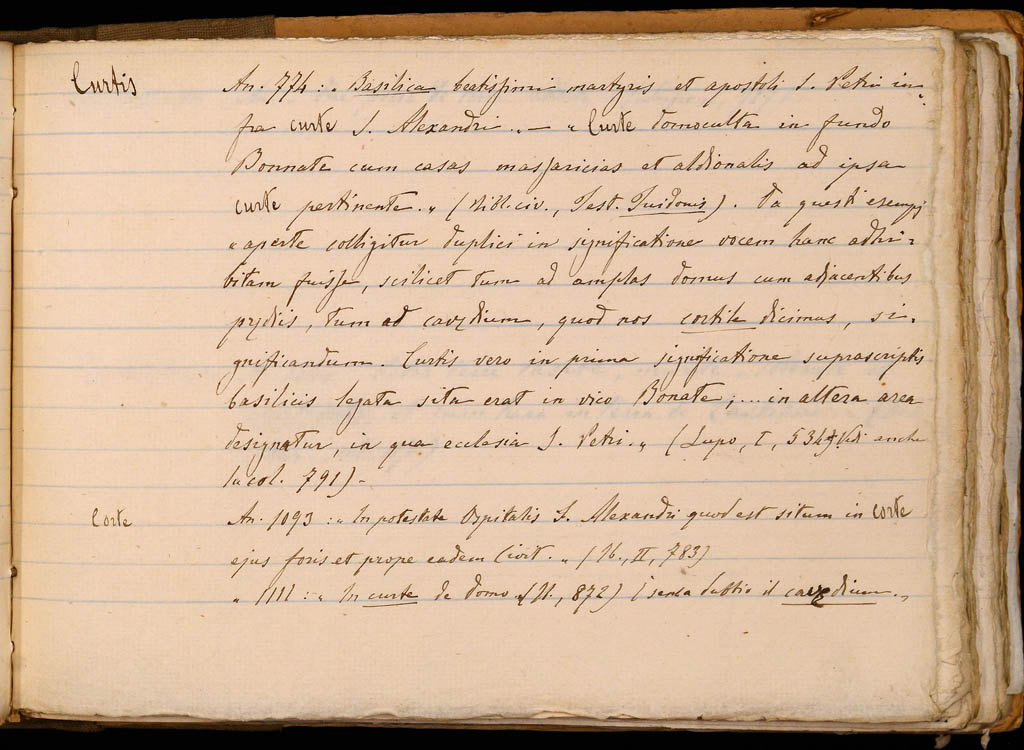 Curtis An. 774: „ Basilica beatissimi martyris et apostoli S. Petri in-
fra curte S. Alexandri „ — „ Curte domoculta in fundo
Bonnate cum casas massaricias et aldionalis ad ipsa
curte pertinente. „ (Bibl. civ., Test. Tuidonis). Da questi esempj
„ aperte colligitur duplici in significatione vocem hanc adhi-
bitam fuisse, scilicet tum ad amplas domus cum adjacentibus
prędiis, tum ad cavędium, quod nos cortile dicimus, si-
gnificandum. Curtis vero in prima significatione suprascriptis
basilicis legata sita erat in vico Bonate; ... in altera area
designatur, in qua ecclesia S. Petri. „ (Lupo, I, 534) Vedi anche
la col. 791) -
Corte An. 1093: „ In potestate Ospitalis S. Alexandri quod est situm in corte
ejus foris et prope eadem Civit. „ (Ib., II, 783)
„ 1111: „ In curte de domo „ (Ib., 872) (senza dubbio il cavędium. „